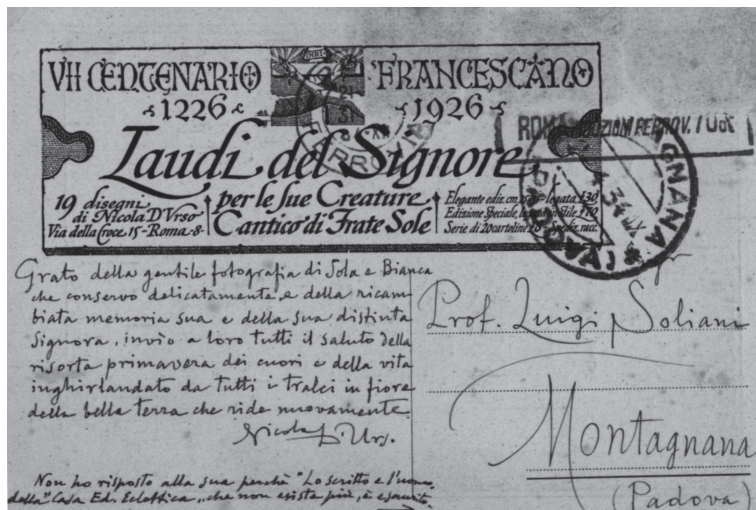 VII CENTENARIO FRANCESCANO
1226 1926
Laudi del Signore
per le sue Creature
Cantico di Frate Sole
19 disegni
di Nicola D'Urso
Via della Croce 15-Roma-8-
Elegante ediz. cm. legata £30
Edizione Speciale, in stile £70
Serie di 20 cartoline Spediz. racc.
ROMA FERROV.
GNANA
34 IX
Grato della gentile fotografia di Sola e Bianca
che conservo delicatamente, e della ricam-
biata memoria sua e della sua distinta
Signora, invio a loro tutti il saluto della
risorta primavera dei cuori e della vita
inghirlandato da tutti i tralci in fiore
della bella terra che ride nuovamente
Nicola D'Urso.
Non ho risposto alla sua perchè "Lo scritto e l'uomo
della "Casa Ed. Eclettica", che non esiste più, è esaurito.
Prof. Luigi Soliani
Montagnana
(Padova)